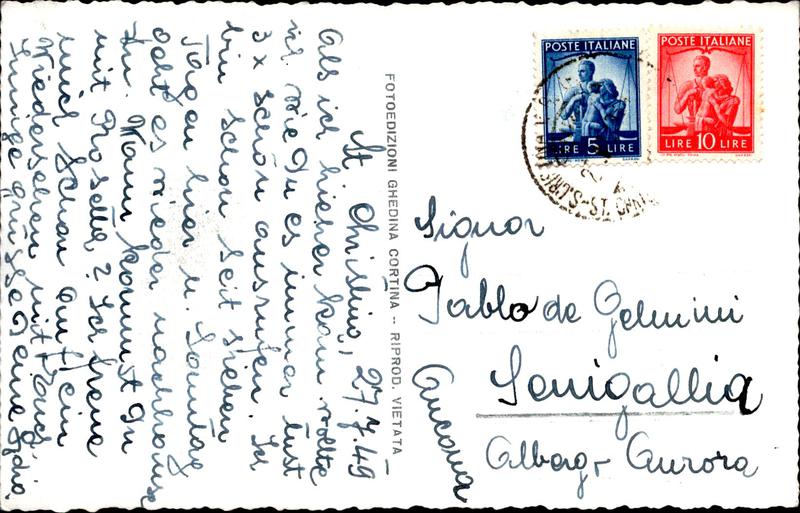 St. Christina, 27.7.49
Als ich hierher kam wollte
ich wie Du es immer tust
3 x schön ausrufen. Ich
bin schon seit sieben
Tagen hier u. Samstag
geht es wieder nachhause
Zu. Wann kommst Du
mit Rosella? Ich freue
mich schon auf ein
Wiedersehen mit Euch.
Innige grüsse Deine Lydia
FOTOEDIZIONI GHEDINA CORTINA -- RIPROD. VIETATA
POSTE ITALIANE
LIRE 5 LIRE
POSTE ITALIANE
LIRE 10 LIRE
Signor
Pablo de Gelmini
Senigallia
Alberg. Aurora
Ancona